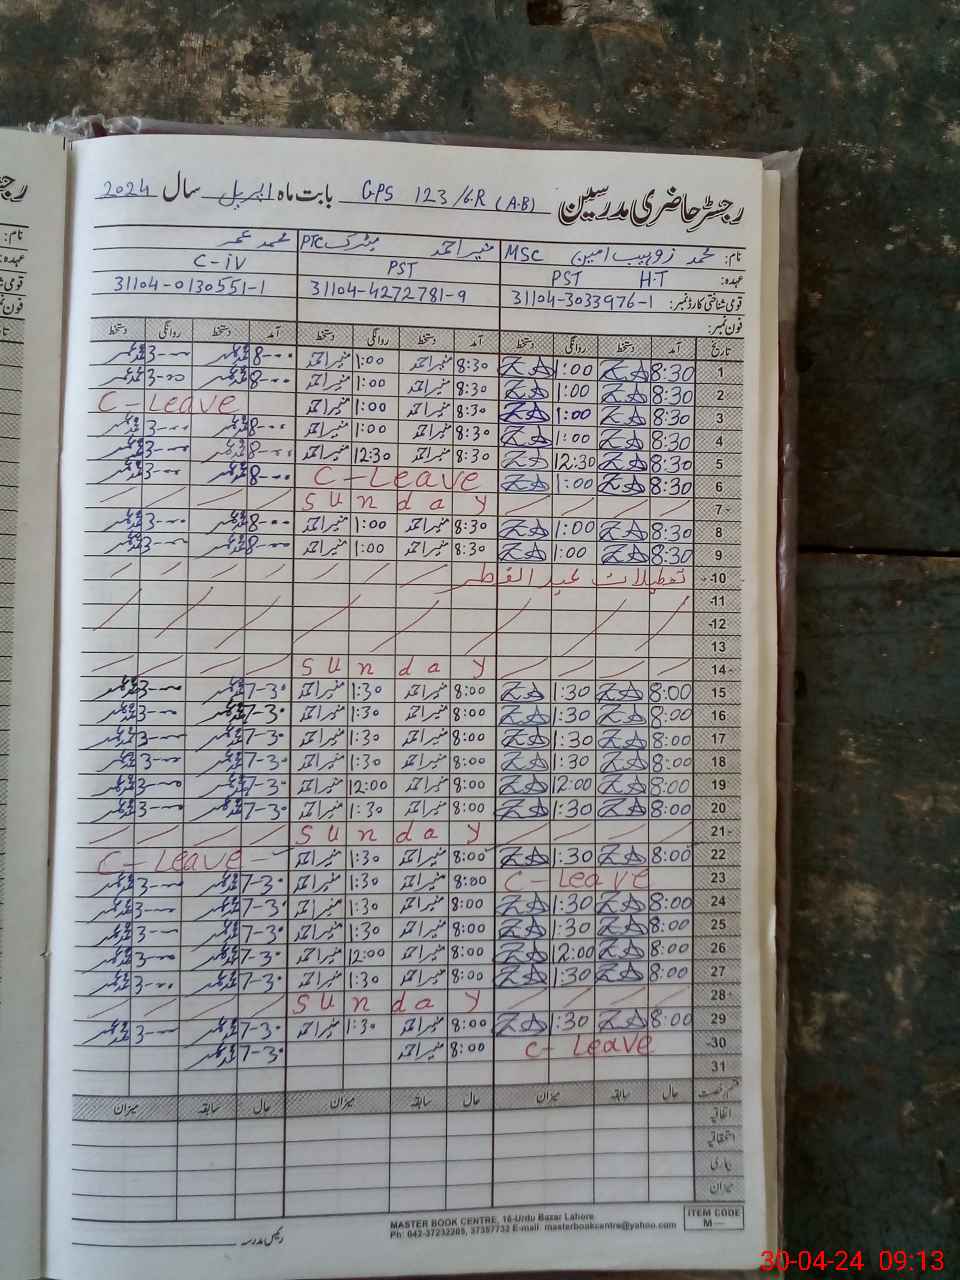 رجسٹر حاضری مدرسین GPS 123/6.R (A.B) بابت ماہ اپریل سال 2024
نام: محمد زوہیب امین MSC منیر احمد میٹرک PTC محمد عمر
عہدہ: H.T PST PST C-iV
قومی شناختی کارڈ نمبر: 31104-3033976-1 31104-4272781-9 31104-0130551-1
فون نمبر:
تاریخ آمد دستخط روانگی دستخط آمد دستخط روانگی دستخط آمد دستخط روانگی دستخط
1 8:30 ZA 1:00 ZA 8:30 منیر احمد 1:00 منیر احمد 8-00 محمد عمر 3-00 محمد عمر
2 8:30 ZA 1:00 ZA 8:30 منیر احمد 1:00 منیر احمد 8-00 محمد عمر 3-00 محمد عمر
3 8:30 ZA 1:00 ZA 8:30 منیر احمد 1:00 منیر احمد C-Leave
4 8:30 ZA 1:00 ZA 8:30 منیر احمد 1:00 منیر احمد 8-00 محمد عمر 3-00 محمد عمر
5 8:30 ZA 12:30 ZA 8:30 منیر احمد 12:30 منیر احمد 8-00 محمد عمر 3-00 محمد عمر
6 8:30 ZA 1:00 ZA C-Leave 8-00 محمد عمر 3-00 محمد عمر
7 Sunday
8 8:30 ZA 1:00 ZA 8:30 منیر احمد 1:00 منیر احمد 8-00 محمد عمر 3-00 محمد عمر
9 8:30 ZA 1:00 ZA 8:30 منیر احمد 1:00 منیر احمد 8-00 محمد عمر 3-00 محمد عمر
10 تعطیلات عید الفطر
11
12
13
14 Sunday
15 8:00 ZA 1:30 ZA 8:00 منیر احمد 1:30 منیر احمد 7-30 محمد عمر 3-00 محمد عمر
16 8:00 ZA 1:30 ZA 8:00 منیر احمد 1:30 منیر احمد 7-30 محمد عمر 3-00 محمد عمر
17 8:00 ZA 1:30 ZA 8:00 منیر احمد 1:30 منیر احمد 7-30 محمد عمر 3-00 محمد عمر
18 8:00 ZA 1:30 ZA 8:00 منیر احمد 1:30 منیر احمد 7-30 محمد عمر 3-00 محمد عمر
19 8:00 ZA 12:00 ZA 8:00 منیر احمد 12:00 منیر احمد 7-30 محمد عمر 3-00 محمد عمر
20 8:00 ZA 1:30 ZA 8:00 منیر احمد 1:30 منیر احمد 7-30 محمد عمر 3-00 محمد عمر
21 Sunday
22 8:00 ZA 1:30 ZA 8:00 منیر احمد 1:30 منیر احمد C-Leave
23 C-Leave 8:00 منیر احمد 1:30 منیر احمد 7-30 محمد عمر 3-00 محمد عمر
24 8:00 ZA 1:30 ZA 8:00 منیر احمد 1:30 منیر احمد 7-30 محمد عمر 3-00 محمد عمر
25 8:00 ZA 1:30 ZA 8:00 منیر احمد 1:30 منیر احمد 7-30 محمد عمر 3-00 محمد عمر
26 8:00 ZA 12:00 ZA 8:00 منیر احمد 12:00 منیر احمد 7-30 محمد عمر 3-00 محمد عمر
27 8:00 ZA 1:30 ZA 8:00 منیر احمد 1:30 منیر احمد 7-30 محمد عمر 3-00 محمد عمر
28 Sunday
29 8:00 ZA 1:30 ZA 8:00 منیر احمد 1:30 منیر احمد 7-30 محمد عمر 3-00 محمد عمر
30 C-Leave 8:00 منیر احمد 7-30 محمد عمر
31
قسم رخصت حال سابقہ میزان حال سابقہ میزان حال سابقہ میزان
اتفاقیہ
استحقاقیہ
بیماری
میزان
رئیس مدرسہ
MASTER BOOK CENTRE, 16-Urdu Bazar Lahore
Ph: 042-37232205, 37357732 E-mail: masterbookcentre@yahoo.com
ITEM CODE
M—
30-04-24 09:13